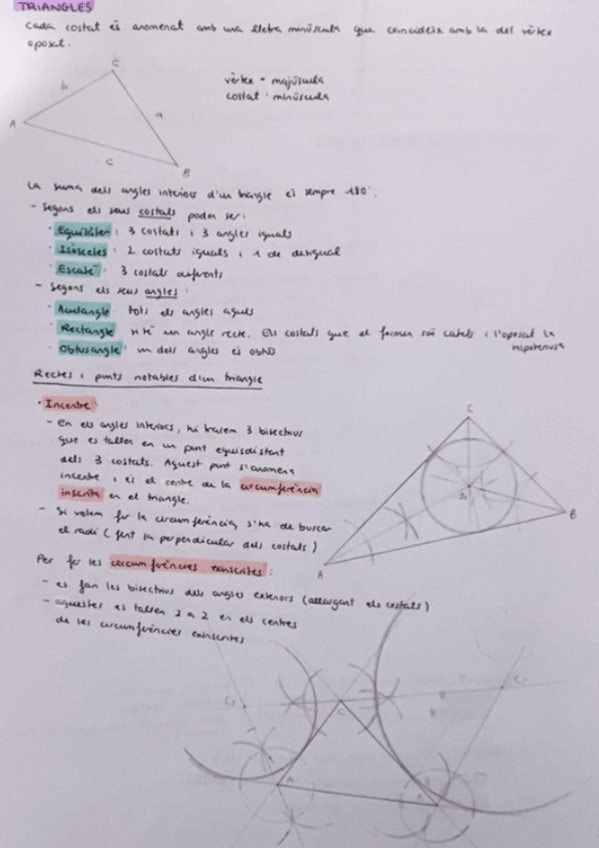 TRIANGLES
Cada costat és anomenat amb una lletra minúscula que coincideix amb la del vèrtex
oposat.
C
b
vèrtex = majúscula
costat: minúscula
a
A
C
B
La suma dels angles interiors d'un triangle és sempre 180°.
- Segons els seus costats poden ser:
· Equilàter: 3 costats i 3 angles iguals
· Isòsceles: 2 costats iguals i 1 de desigual
· Escalè: 3 costats diferents
- Segons els seus angles:
· Acutangle: tots els angles aguts
· Rectangle: hi té un angle recte. Els costats que el formen són catets i l'oposat la
hipotenusa
· Obtusangle: un dels angles és obtús
Rectes i punts notables d'un triangle
· Incentre:
- En els angles interiors, hi tracem 3 bisectrius
que es tallen en un punt equidistant
dels 3 costats. Aquest punt s'anomena
incentre i és el centre de la circumferència
inscrita en el triangle.
- Si volem fer la circumferència, s'ha de buscar
el radi (fent la perpendicular dels costats)
C
B
A
Per fer les circumferències exinscrites:
- es fan les bisectrius dels angles exteriors (allargant els costats)
- aquestes es tallen 2 a 2 en els centres
de les circumferències exinscrites
C
A